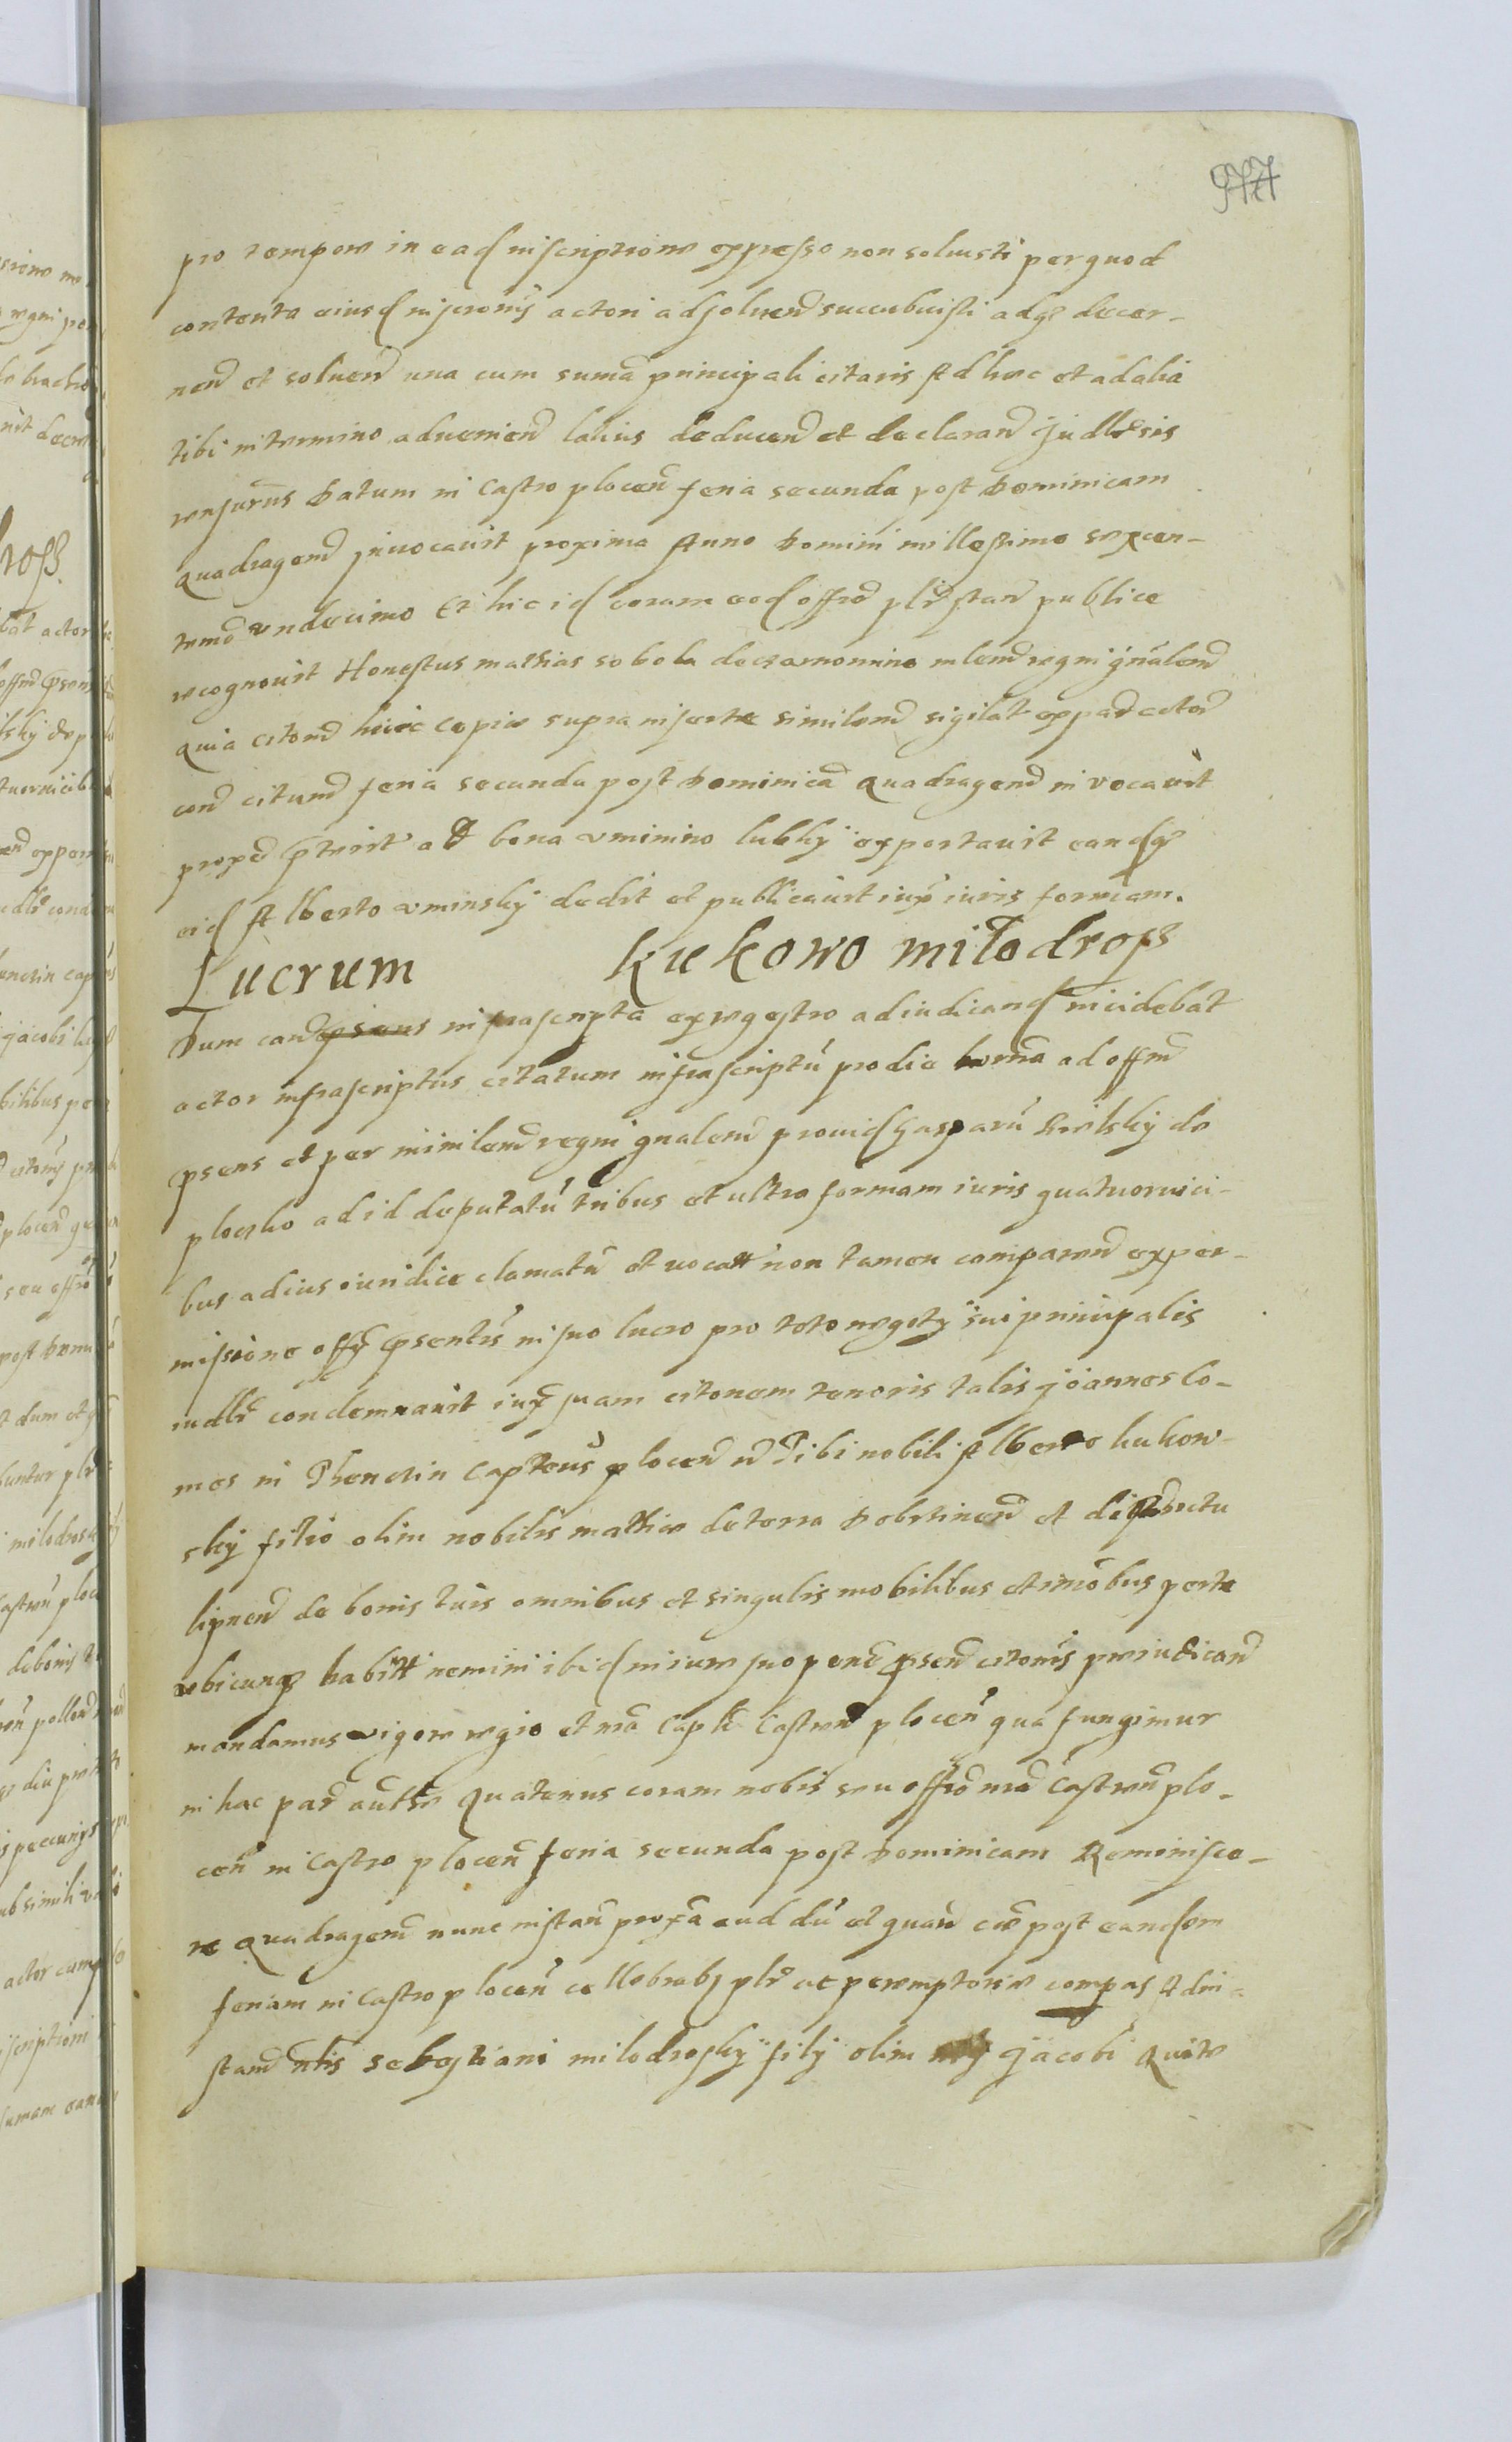 977
pro tempore in ead inscriptione expresso non solvisti per quod
contenta eiusd inscronis actori ad solvend succubuisti adq decer-
nend et solvend una cum suma principali citaris Ad haec et ad alia
tibi in termino advenien latius deducend et declarand Judlr sis
responsurus Datum in Castro plocen feria secunda post Dominicam
Quadragend Invocavit proxima Anno Domini millesimo sexcen-
temo undecimo Et hic id coram eod offo plr stan publice
recognovit Honestus Mathias sobola de Ciamonino mlem regni gnalem
Quia citonem huic copiae supra insertae similem sigilat ex parte actor
con citatum feria secunda post Dominica Quadragend invocavit
proxe pterit ad bona uminino lubky exportavit eandq
eid Alberto uminsky dedit et publicavit iux iuris formam.
Lucrum Kukowo miłodrosz
Dum caud infrascripta ex regestro adiudicand incidebat
actor infrascriptus citatum infrascriptu pro die hoerna ad offm
psens et per minilem regni gnalem provid Gasparu Bielsky de
ploczko ad id deputatu tribus et ultra formam iuris quatuorvici-
bus ad ius iuridice clamatu et vocatt non tamen comparen ex per-
missione offy psentis in suo lucro pro toto negoty sui principalis
iudlr condemnavit iux suam citonem tenoris talis Joannes Co-
mes in Thenczin Capteus plocen ec Tibi nobili Alberto kukow-
sky filio olim nobilis mathie de terra Dobrzinen et districtu
lipnen de bonis tuis omnibus et singulis mobilibus et imobus perte
ubicunq habitt nemini ibid in iure suo pene psen citonis preiudicand
mandamus vigore regio et nra Captli Castren plocen qua fungimur
in hac par autte Quatenus coram nobis seu offo nro Castren plo-
cen in Castro plocen feria secunda post Dominicam Reminisce-
re Quadragend nunc instan proxa aud du et quan cre post eandem
feriam in Castro plocen cellebrabz plr ac peremptorie compas Ad in-
stand nlis Sebastiani milodrosky fily olim Jacobi Qui te